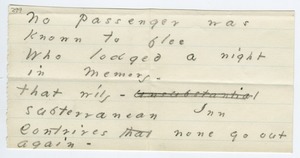 No passenger was
known to flee
Who lodged a night
in memory -
That wily - unsubstantial
subterranean Inn
Contrives that none go out
again -